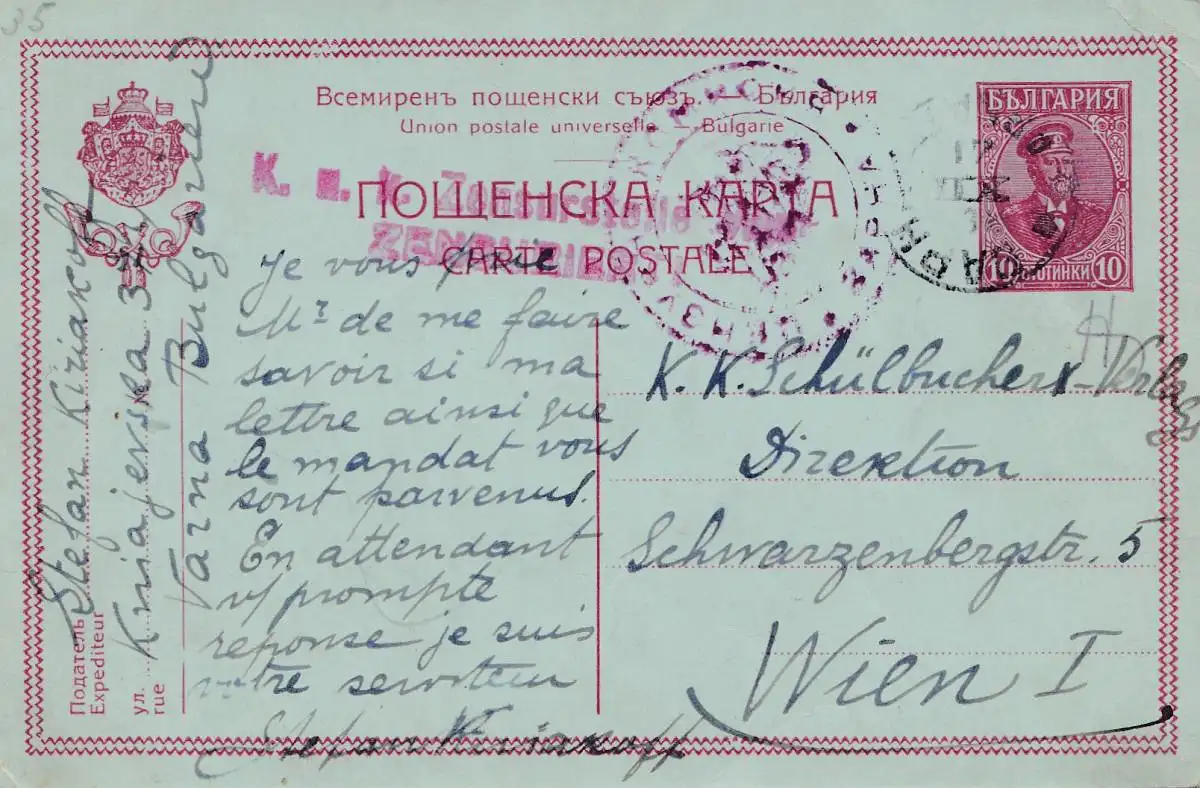 35
Всемиренъ пощенски съюзъ. — България
Union postale universelle — Bulgarie
ПОЩЕНСКА КАРТА
CARTE POSTALE
БЪЛГАРИЯ
10 СТОТИНКИ 10
K. u. k. Zensurstelle
Je vous prie
Mr de me faire
savoir si ma
lettre ainsi que
le mandat vous
sont parvenus.
En attendant
v/ prompte
reponse je suis
votre serviteur
Stefan Kiriakoff
K. K. Schülbucher-
Direktion
Schwarzenbergstr. 5
Wien I
Податель
Expéditeur
Stefan Kiriakoff
ул.
rue
Kniajevska 31
Varna Bulgarien